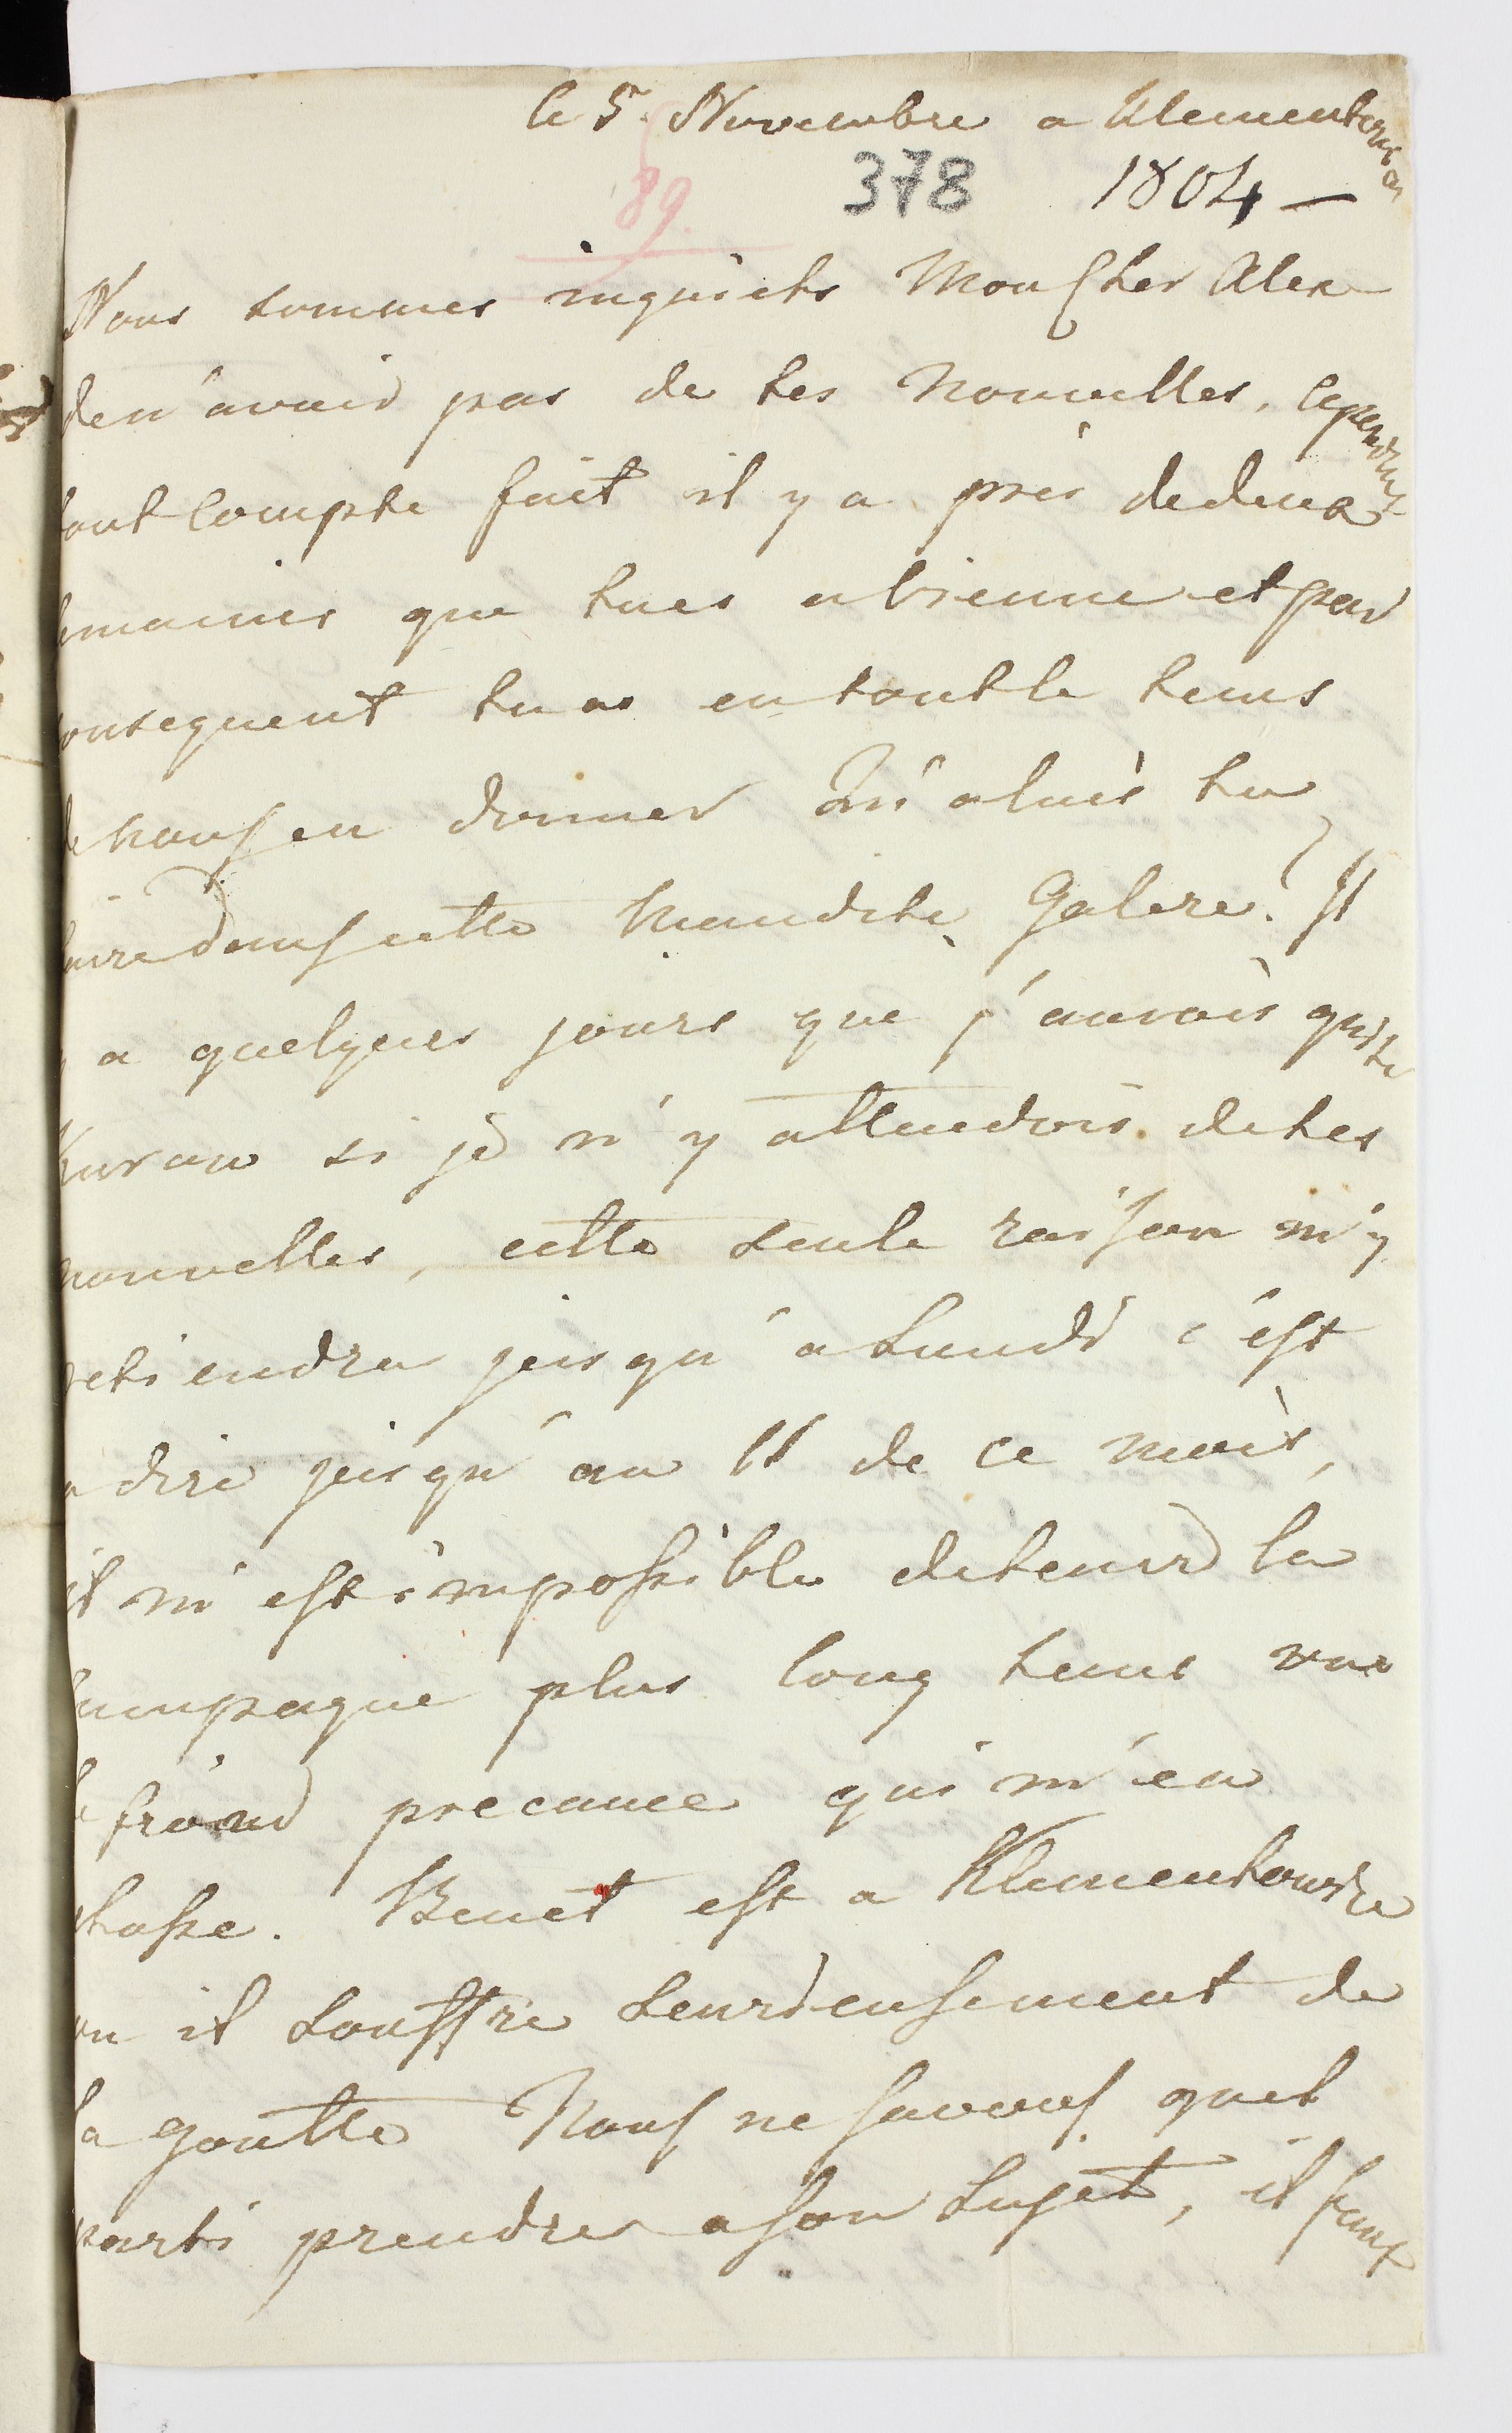 le 5 Novembre a Klementowice
89. 378 1804 —
Nous sommes inquiets Mon Cher Alex
den'avoir pas de tes nouvelles, Cependant
tout Compte fait il y a près dedeux
semaines que tues avienne et par
consequent tu as eu toutle tems
de nous en donner Qu'alais tu
faire dans cette maudite Galere? Il
y a quelques jours que j'aurois quité
Kurow si je n'y attendois detes
nouvelles, cette seule raison m'y
retiendra jusqu'a Lundi c'est
a dire jusqu'au 11 de ce mois,
il m'est impossible detenir la
campagne plus long tems vue
le froid precauce qui m'en
chasse. Benet est a Klementowice
ou il souffre serieusement de
la goutte Nous ne savons quel
parti prendre a son sujet, il faut